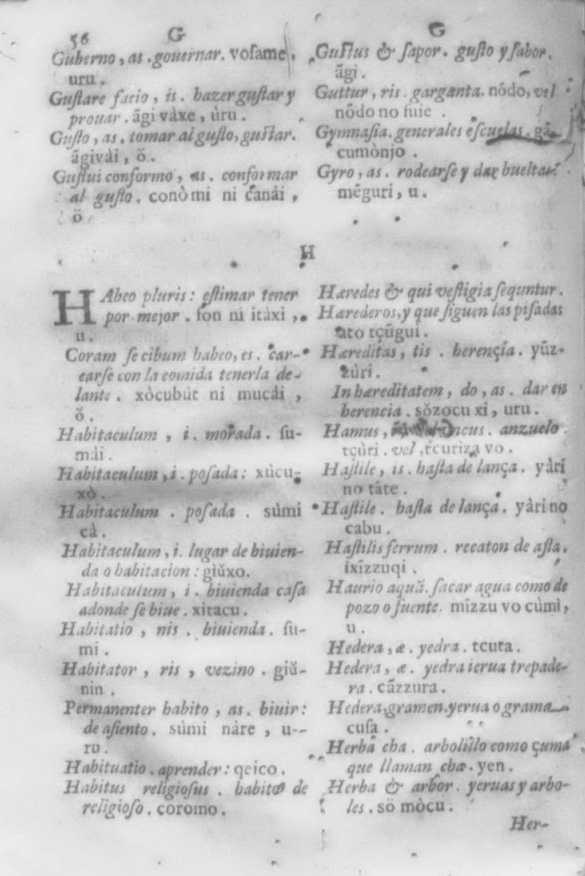 56 G G
Guberno, as. gouernar. vosame,
uru.
Gustare facio, is. hazer gustar y
prouar. ãgi vàxe, ùru.
Gusto, as. tomar al gusto, gustar.
ãgivài, ŏ.
Gustui conformo, as. conformar
al gusto. conòmi ni canài,
ŏ
Gustus & sapor. gusto y sabor.
ãgi.
Guttur, ris. garganta. nõdo, vel
nõdo no fuie.
Gymnasia. generales escuelas. gă-
cumònjo.
Gyro, as. rodearse y dar bueltas
mẽguri, u.
H
HAbeo pluris: estimar tener
por mejor. fon ni itàxi,
u.
Coram se cibum habeo, es. car-
earse con la comida tenerla de-
lante. xòcubùt ni mucài,
ŏ.
Habitaculum, i. morada. su-
mài.
Habitaculum, i. posada: xùcu-
xò.
Habitaculum. posada. sùmi
cà.
Habitaculum, i. lugar de biuien-
da o habitacion: giŭxo.
Habitaculum, i. biuienda casa
adonde se biue. xitacu.
Habitatio, nis. biuienda. su-
mi.
Habitator, ris, vezino. giŭ-
nin.
Permanenter habito, as. biuir:
de asiento. sùmi nàre, u-
ru.
Habituatio. aprender: qeico.
Habitus religiosus. habito de
religioso. coromo.
Hæredes & qui vestigia sequntur.
Harederos, y que siguen las pisadas
ato tçŭgui.
Hæreditas, tis. herençia. yŭz-
zùri.
In hæreditatem, do, as. dar en
herencia. sŏzocu xi, uru.
Hamus, uncus. anzuelo.
tçùri. vel, tcuriza vo.
Hastile, is. hasta de lança. yàri
no tàte.
Hastile. hasta de lança. yàri no
cabu.
Hastilis ferrum. recaton de asta.
ixizzuqi.
Haurio aquã. sacar agua como de
pozo o fuente. mizzu vo cùmi,
u.
Hedera, æ. yedra. tcuta.
Hedera, æ. yedra ierua trepade-
ra. cãzzura.
Hedera, gramen. yerua o grama
cusa.
Herba cha. arbolillo como çuma
que llaman cha. yen.
Herba & arbor. yeruas y arbo-
les. sŏ mòcu.
Her-